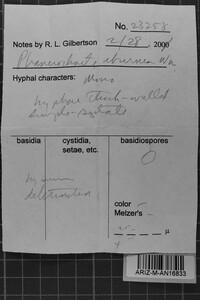 No. 23258
Notes by R. L. Gilbertson 2/28, 2000
Phanerochaete eburnea
Hyphal characters: Mono
hyphae thick-walled
simple-septate
basidia
cystidia,
setae, etc.
basidiospores
O
hymenium
deteriorated
color –
Melzer's –
µ
ARIZ-M-AN16833